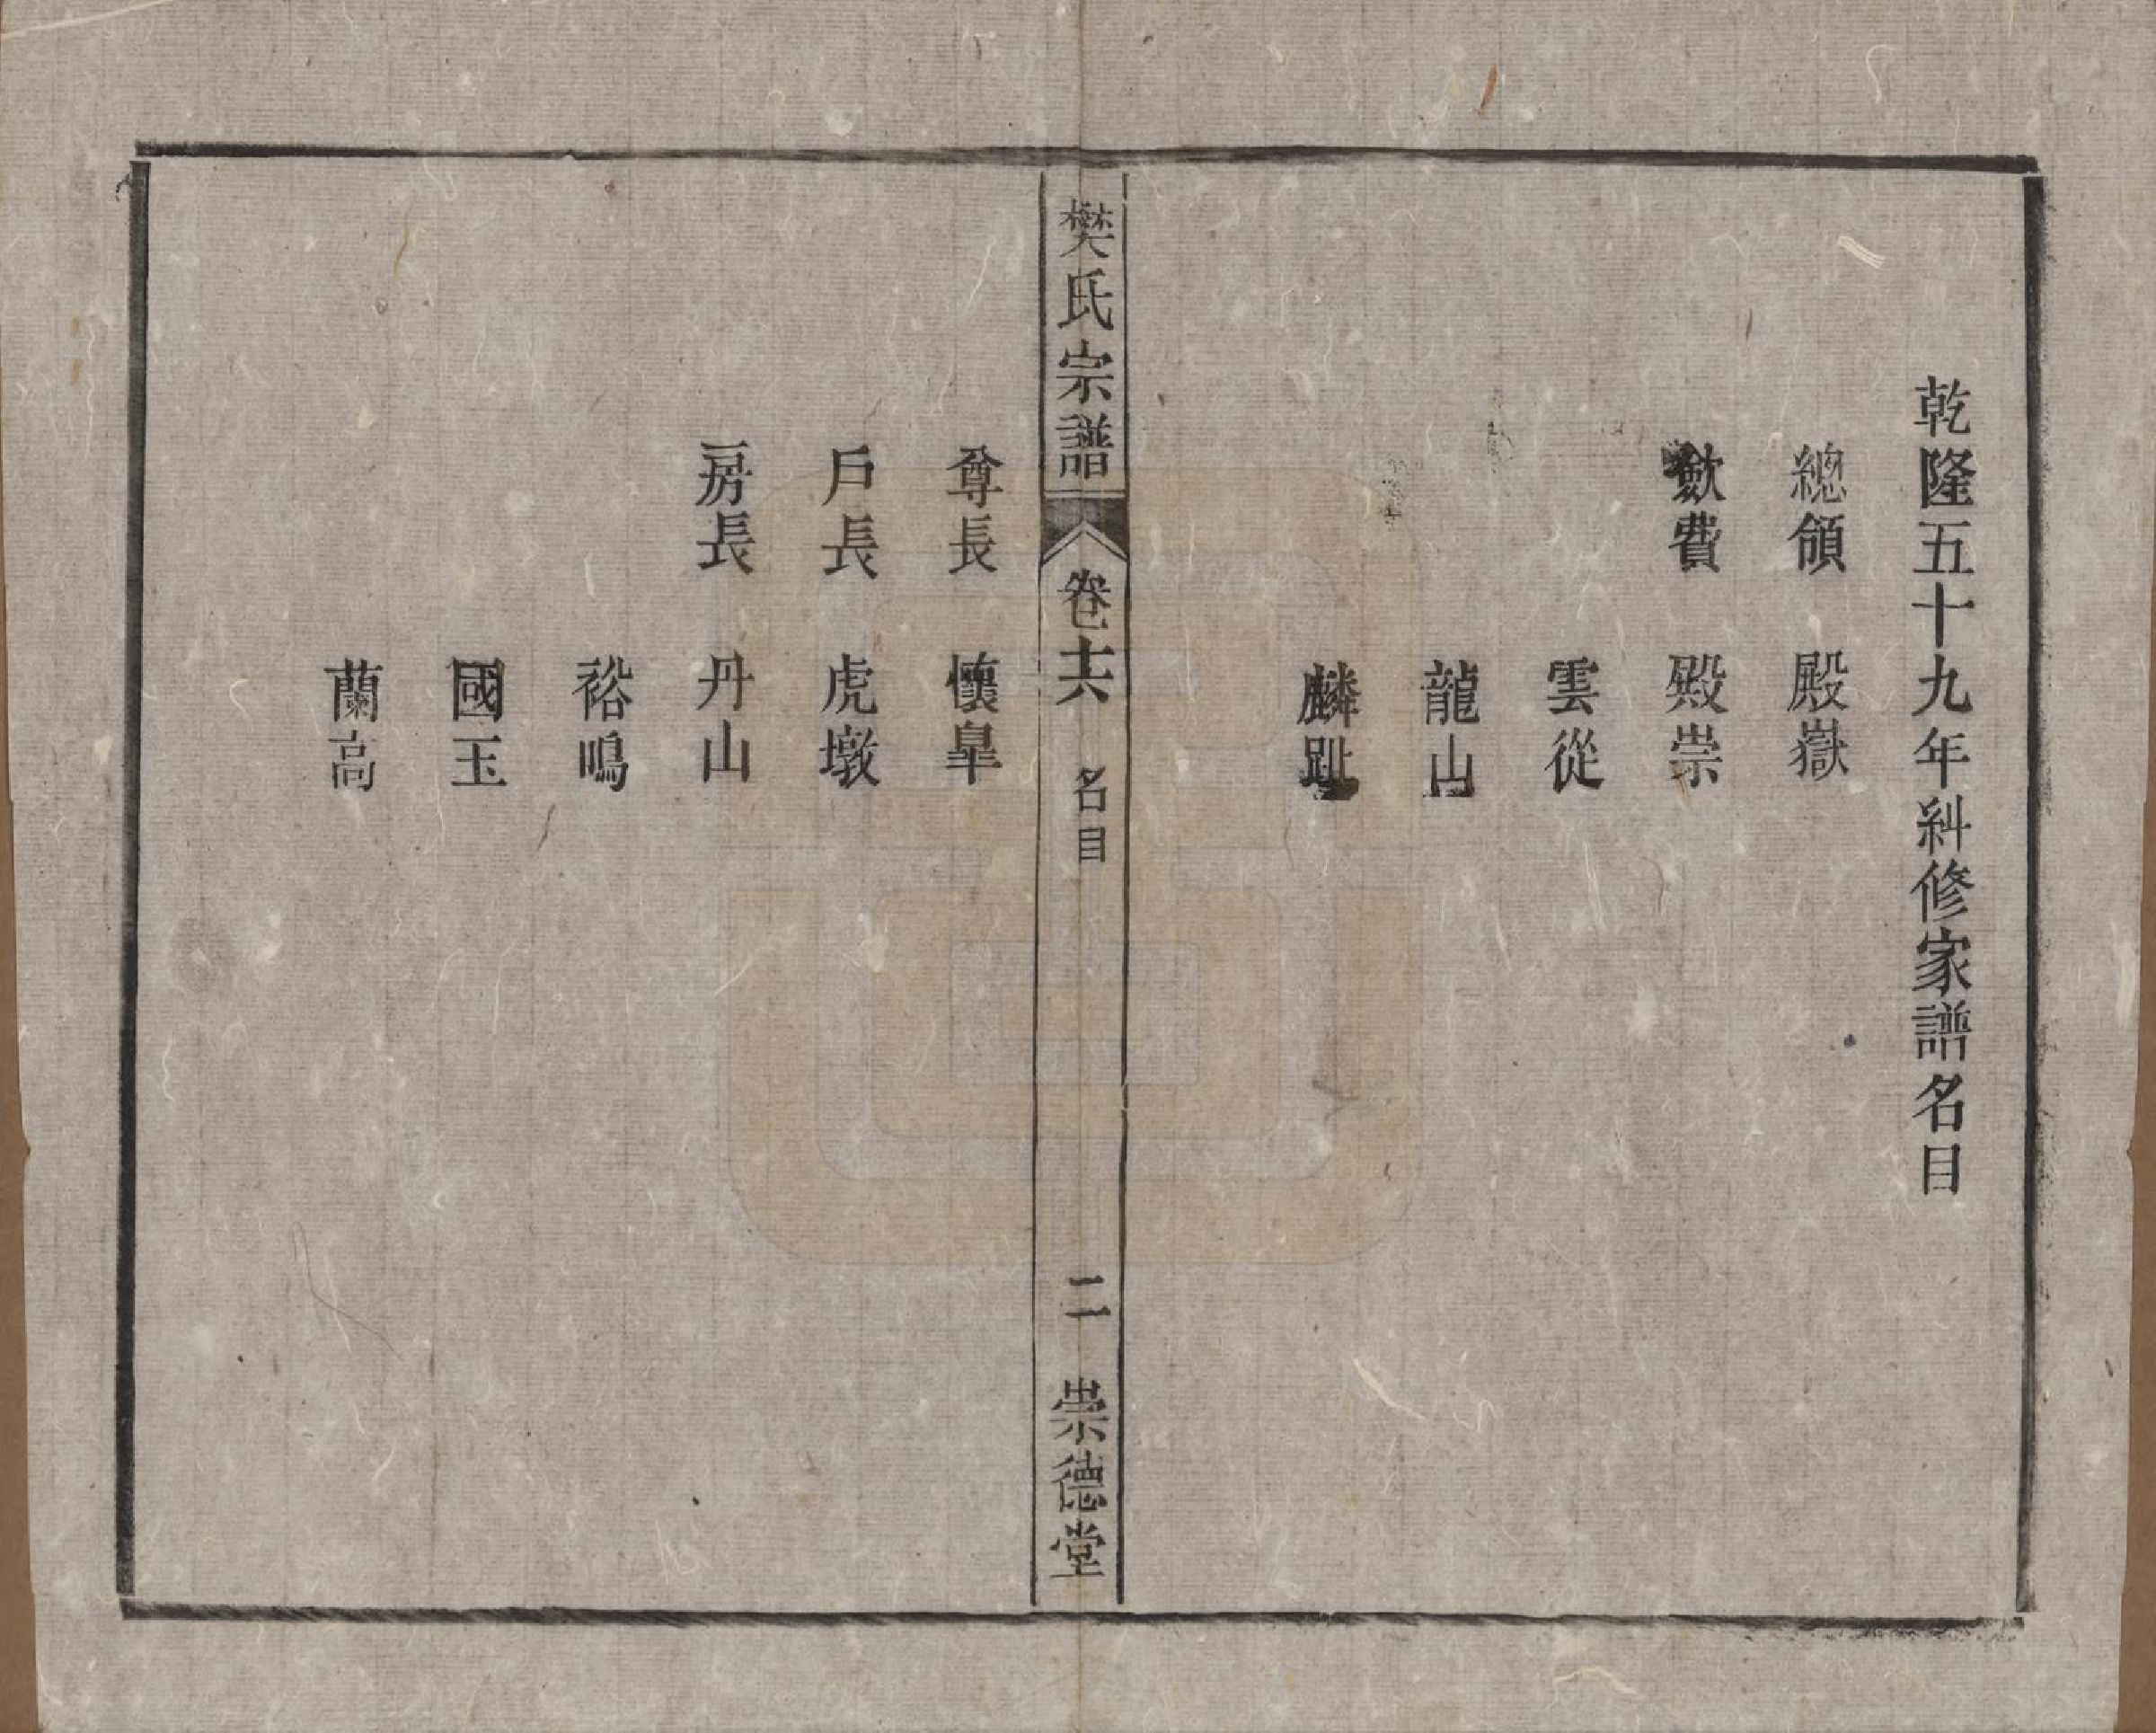 乾隆五十九年糾修家譜名目
總領　殿嶽
歛費　殿崇
雲從
龍山
麟趾
樊氏宗譜　卷十六　名目　二　崇德堂
尊長　懷臯
戶長　虎墩
房長　丹山
裕鳴
國玉
蘭高